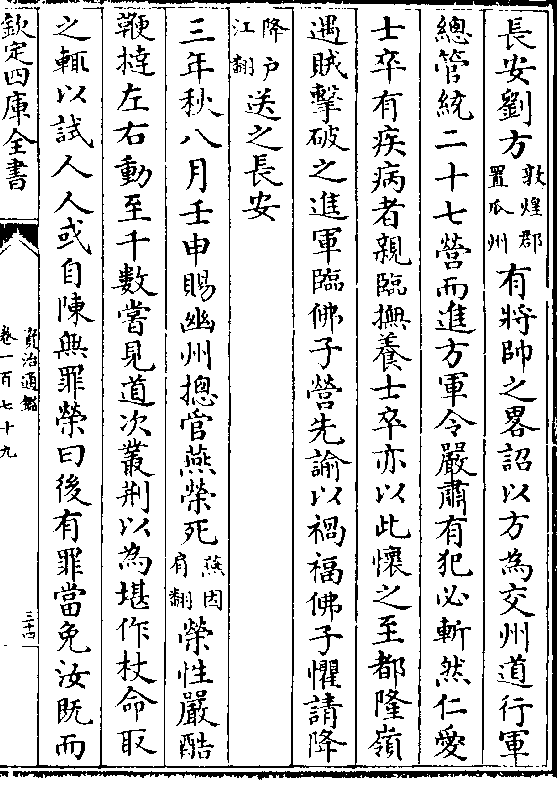 長安劉方敦煌郡置瓜州有將帥之畧詔以方為交州道行軍
總管統二十七營而進方軍令嚴肅有犯必斬然仁愛
士卒有疾病者親臨撫養士卒亦以此懷之至都隆嶺
遇賊擊破之進軍臨佛子營先諭以禍福佛子懼請降
降户江翻送之長安
三年秋八月壬申賜幽州摠管燕榮死燕因肩翻榮性嚴酷
鞭撻左右動至千數嘗見道次叢荆以為堪作杖命取
之輒以試人人或自陳無罪榮曰後有罪當免汝既而
欽定四庫全書
資治通鑑
卷一百七十九
三十四